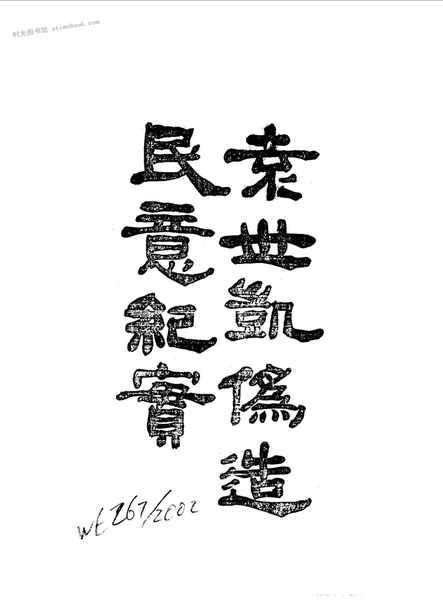 时光图书馆 etimebook.com
袁世凱偽造
民意紀實
WE 267/2002